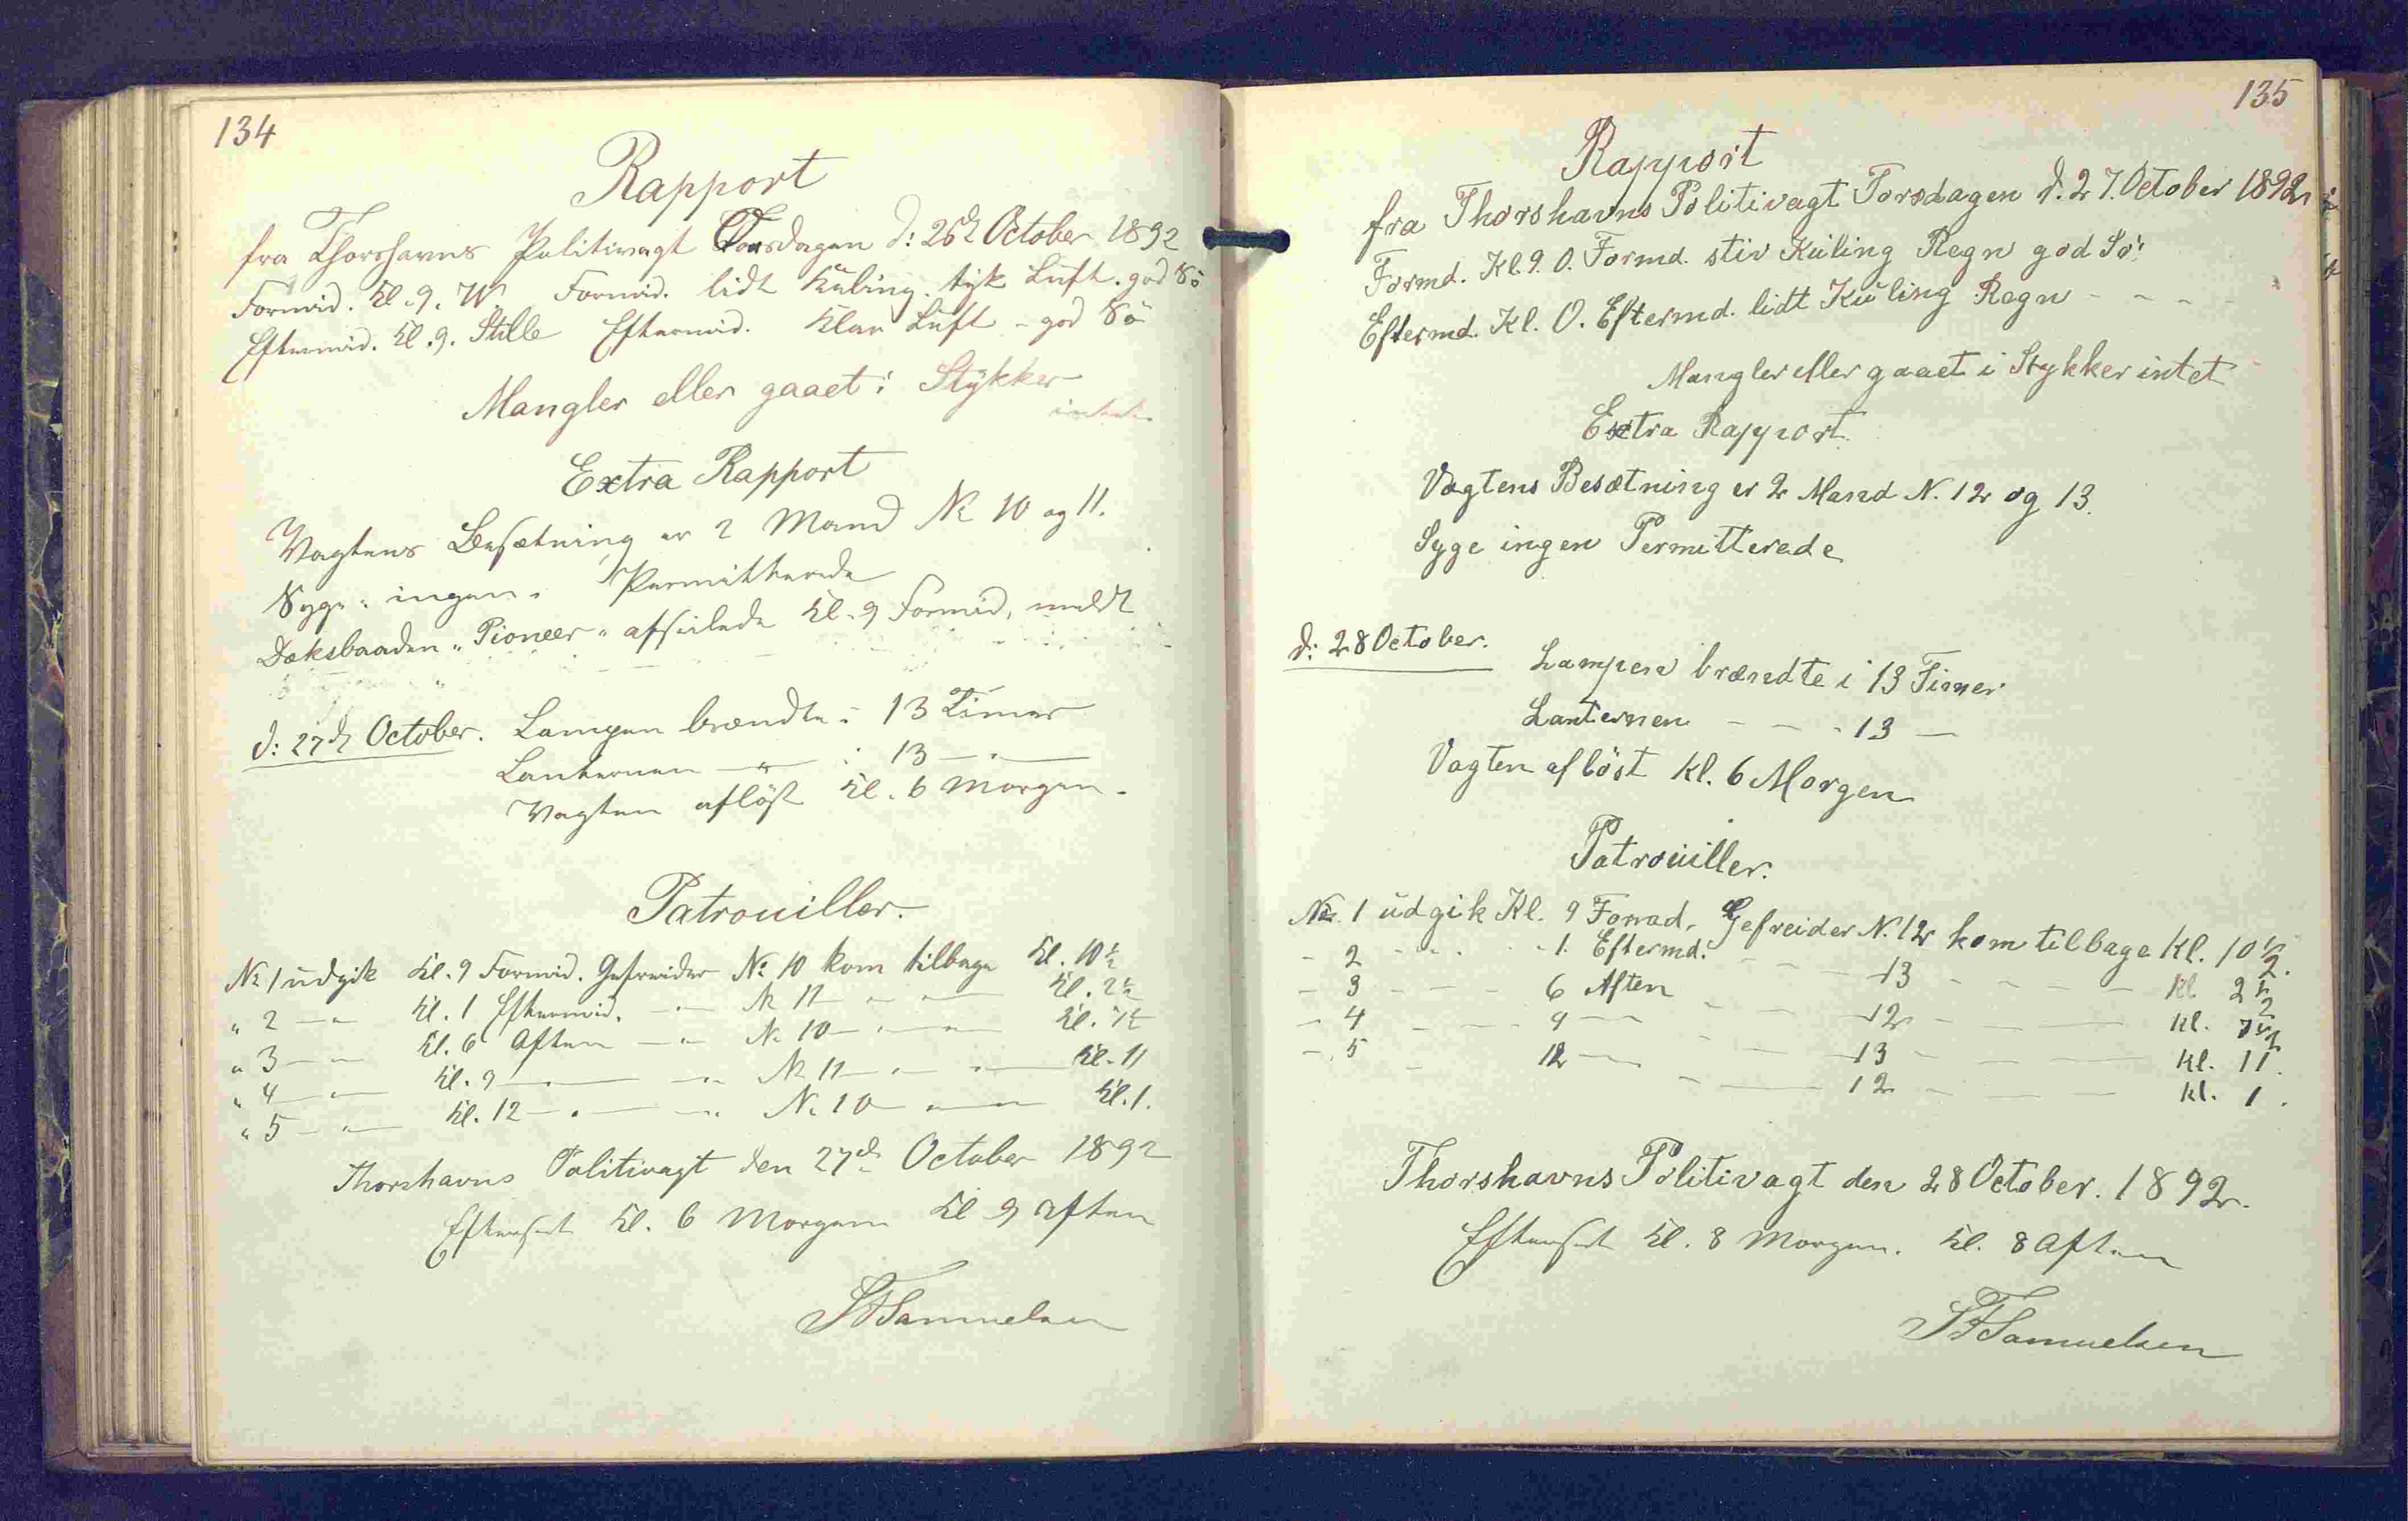 134
Rapport
fra Thorshavns Politivagt Onsdagen d: 26d October 1892
Formid. Kl. 9. W Formid. lidt Kuling. tyk Luft. god Sö
Eftermid. Kl. 9. Stille Eftermid. Klar Luft - god Sö
Mangler eller gaaet i Stykker
intet
Extra Rapport
Vagtens Besætning er 2 Mand No 10 og 11.
Syge " ingen. Permitterede
Dæksbaaden "Pioneer" afseilede Kl. 9 Formid, meldt
d: 27d October. Lampen brændte i 13 Timer
Lanternen — " — i 13 — " —
Vagten aflöst Kl. 6 Morgen.
Patrouiller.
No 1 udgik Kl. 9 Formid. Gefreider No 10 kom tilbage Kl. 10½
" 2 — " Kl. 1 Eftermid. — " No 11 — " — Kl. 2½
" 3 — " Kl. 6 Aften — " No 10 — " — Kl. 7½
" 4 — " Kl. 9 — " — No 11 — " — Kl. 11
" 5 — " Kl. 12 — " — No 10 — " — Kl. 1.
Thorshavns Politivagt den 27d October 1892
Efterseet Kl. 6 Morgen Kl 9 Aften
Samuelsen
135
Rapport
fra Thorshavns Politivagt Torsdagen d. 27. October 1892
Formd. Kl. 9. O. Formd. stiv Kuling Regn god Sö
Eftermd. Kl. O. Eftermd. lidt Kuling Regn - - - -
Mangler eller gaaet i Stykker intet
Extra Rapport.
Vagtens Besætning er 2 Mand N. 12 og 13.
Syge ingen Permitterede
d: 28 October.
Lampen brændte i 13 Timer
Lanternen - - - 13 —
Vagten aflöst Kl. 6 Morgen
Patrouiller.
No. 1 udgik Kl. 9 Formd. Gefreider N. 12 kom tilbage Kl. 10½.
- 2 - - - 1. Eftermd. - - - 13 - - - - Kl 2½
- 3 - - - 6 Aften - - - 12 - - - Kl. 7½
- 4 - - - 9 — - - - 13 - - - Kl. 11.
- 5 - 12 — - - 12 - - - Kl. 1.
Thorshavns Politivagt den 28 October. 1892.
Efterseet Kl. 8 Morgen. Kl. 8 Aften
Samuelsen